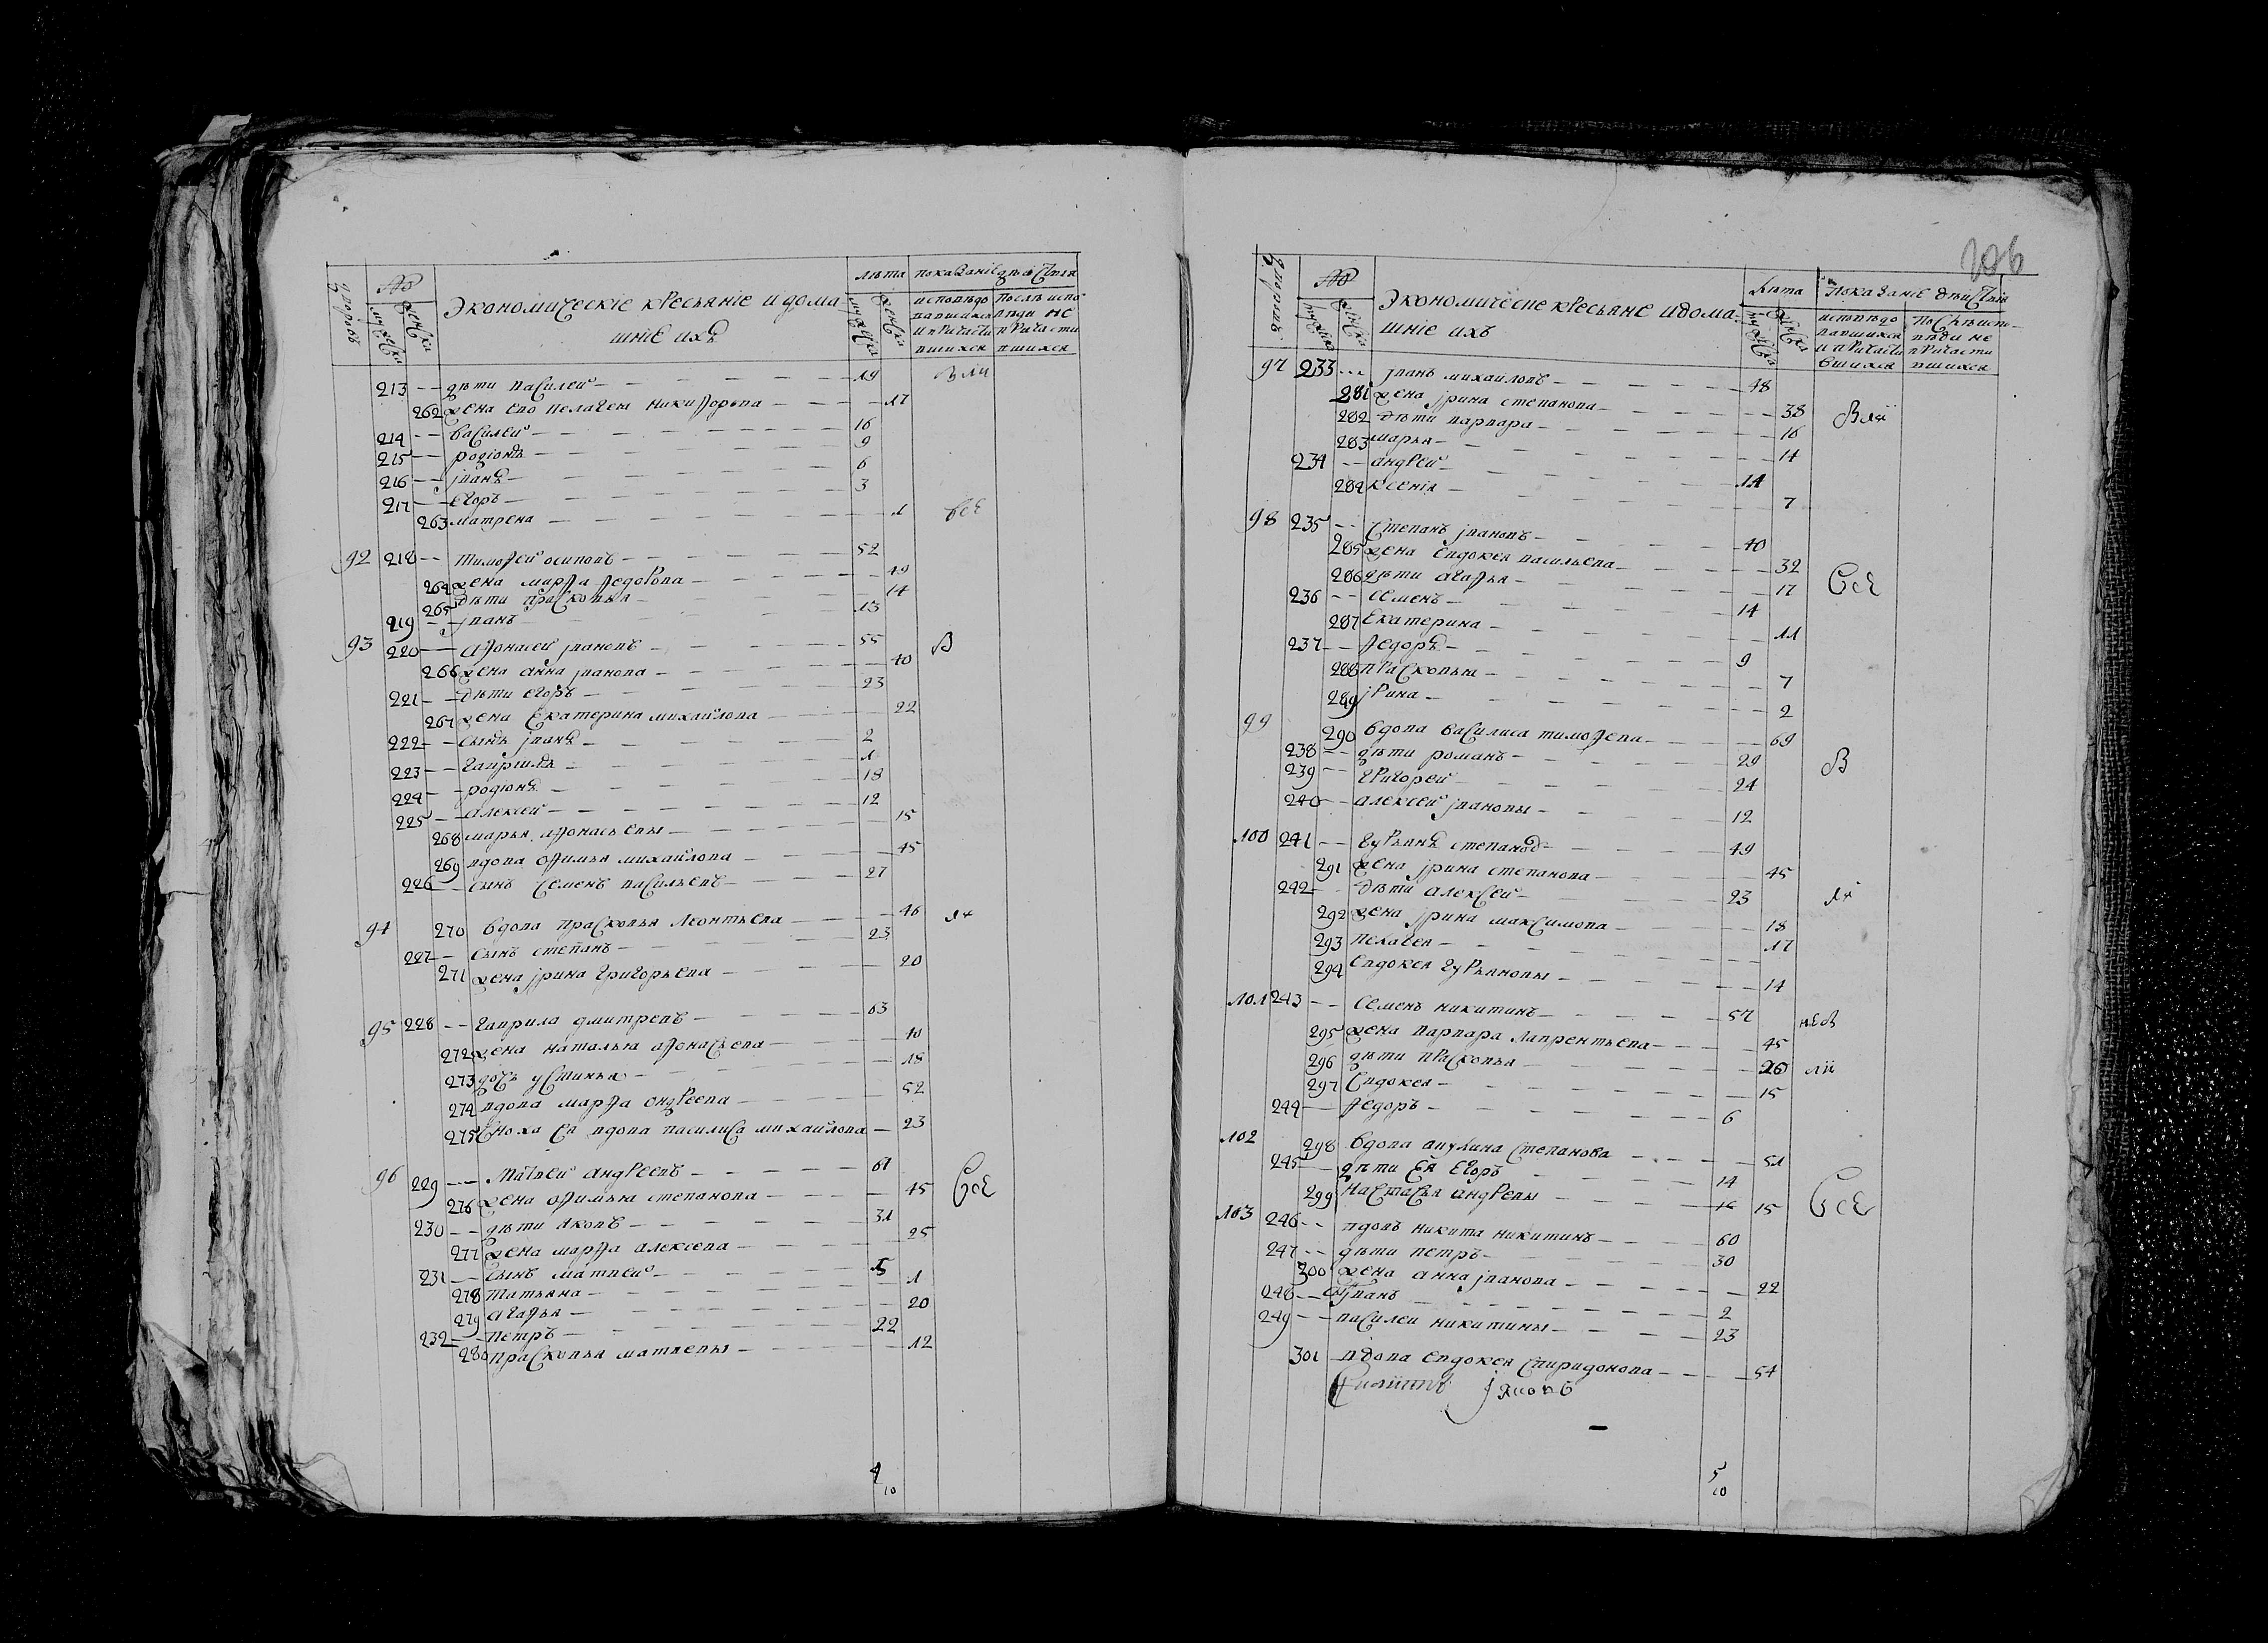 № Экономическіе кресьяніе и дома лѣта показаніе дѣйствія
шніе ихъ
исповѣдо после испо
вавшихся веди не
и причасти причасти
вшихся вшихся
213 -- дѣти василей 19
262 жена ево пелагея никифорова 17
214 -- василей 16
215 -- родіонъ 9
216 -- іванъ 6
217 -- егоръ 3
263 матрена 1 всѣ
92 218 -- тимофей осиповъ 52
264 жена марфа федорова 49
265 дѣти прасковья 14
219 -- іванъ 13
93 220 -- афонасей івановъ 55 в
266 жена анна іванова 40
221 -- дѣти егоръ 23
267 жена екатерина михайлова 22
222 -- сынъ іванъ 2
223 -- гаврила 1
224 -- родіонъ 18
225 -- алексей 12
268 марья афонасьевы 15
269 вдова офимья михайлова 45
226 -- сынъ семенъ васильевъ 27
94 270 вдова прасковья леонтьева 46
227 -- сынъ степанъ 23
271 жена ірина григорьева 20
95 228 -- гаврила дмитревъ 63
272 жена наталья афонасьева 40
273 дочь устинья 18
274 вдова марфа андреева 52
275 сноха ея вдова василиса михайлова 23
96 229 -- матвей андреевъ 61
276 жена офимья степанова 45 все
230 -- дѣти яковъ 31
277 жена марфа алексеева 25
231 -- сынъ матвей 5
278 татьяна 1
279 агафья 20
232 -- петръ 22
280 прасковья матвевы 12
4
10
206
№ Экономические кресьяне и дома лѣта показаніе дѣйствія
шніе ихъ
исповѣдо после испо
вавшихся вѣди не
и причасти причасти
вшихся вшихся
97 233 -- іванъ михайловъ 48
281 жена ірина степанова 38
282 дѣти варвара 16
283 марья 14
234 -- андрей 11
284 ксенія 7
98 235 -- степанъ івановъ 40
285 жена евдокея васильева 32
286 дѣти агафья 17 все
236 -- семенъ 14
287 екатерина 11
237 -- федоръ 9
288 прасковья 7
289 ірина 2
99 290 вдова василиса тимофева 69
238 -- дѣти романъ 29 в
239 -- григорей 24
240 -- алексей івановы 12
100 241 -- гурьянъ степановъ 49
291 жена ірина степанова 45
242 -- дѣти алексей 23
292 жена ірина максимова 18
293 пелагея 17
294 евдокея гурьяновы 14
101 243 -- семенъ никитинъ 57
295 жена варвара лаврентьева 45
296 дѣти прасковья 20
297 евдокея 15
244 -- федоръ 6
102 298 вдова акулина степанова 51
245 -- дѣти ея егоръ 14
299 настасья андревы 15 все
103 246 -- вдовъ никита никитинъ 60
247 -- дѣти петръ 30
300 жена анна іванова 22
248 -- іванъ 2
249 -- василей никитины 23
301 вдова евдокея спиридонова 54
филиппъ
5
10